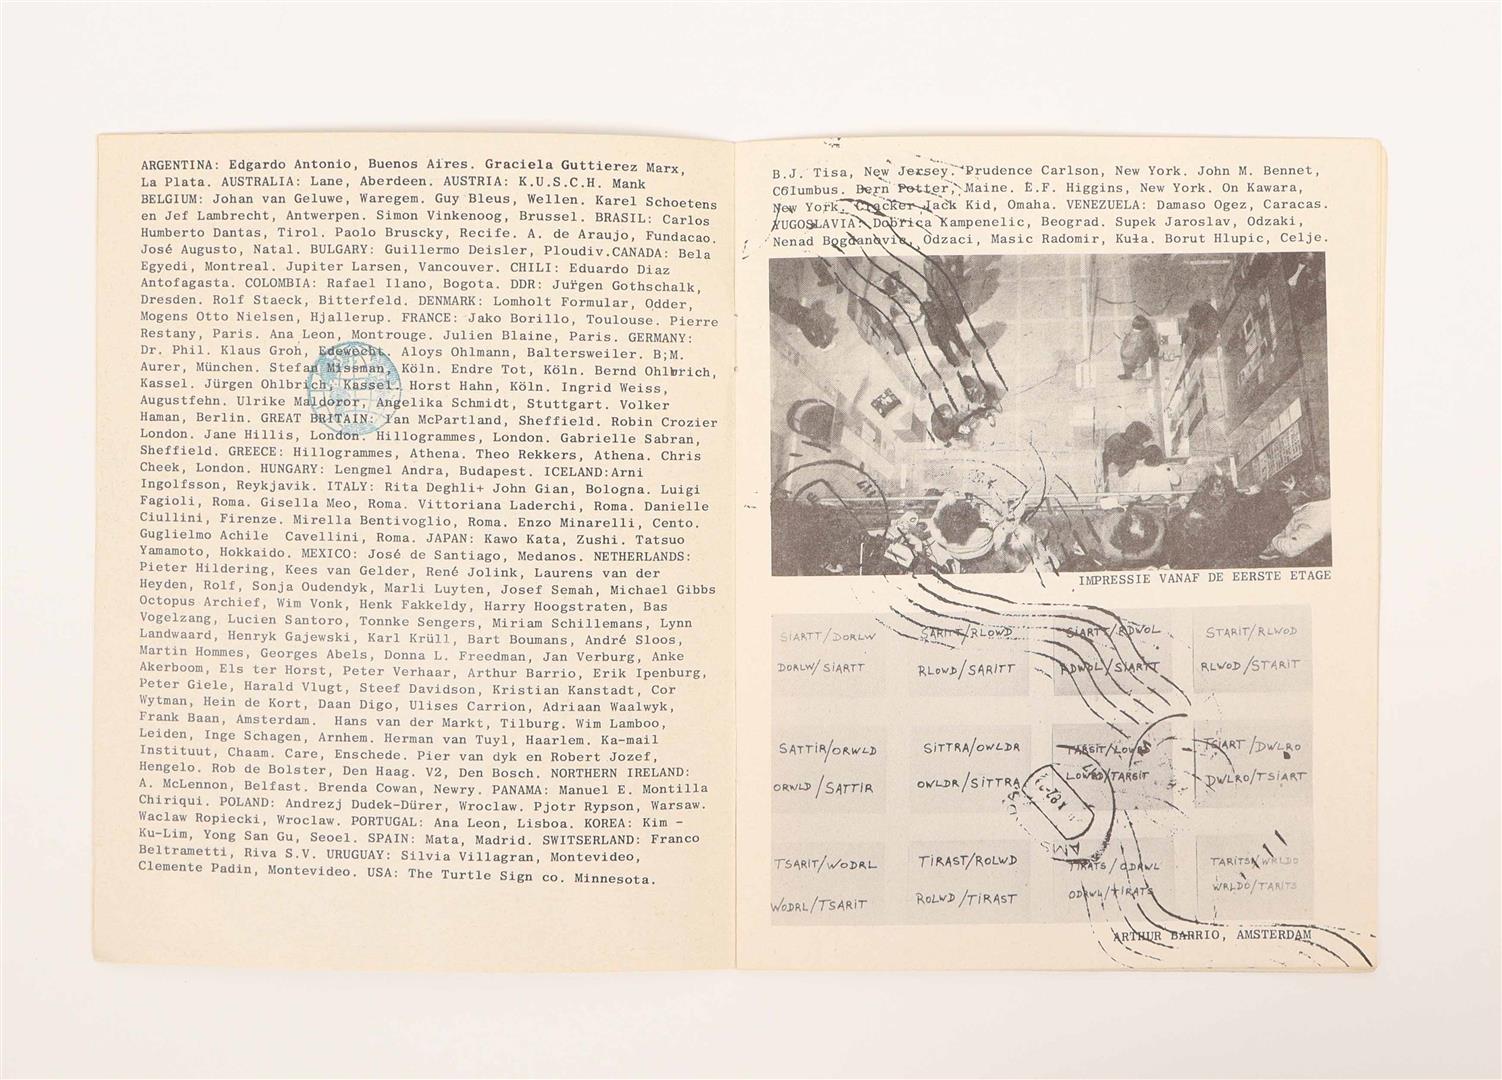 ARGENTINA: Edgardo Antonio, Buenos Aires. Graciela Guttierez Marx,
La Plata. AUSTRALIA: Lane, Aberdeen. AUSTRIA: K.U.S.C.H. Mank
BELGIUM: Johan van Geluwe, Waregem. Guy Bleus, Wellen. Karel Schoetens
en Jef Lambrecht, Antwerpen. Simon Vinkenoog, Brussel. BRASIL: Carlos
Humberto Dantas, Tirol. Paolo Bruscky, Recife. A. de Araujo, Fundacao.
José Augusto, Natal. BULGARY: Guillermo Deisler, Ploudiv.CANADA: Bela
Egyedi, Montreal. Jupiter Larsen, Vancouver. CHILI: Eduardo Diaz
Antofagasta. COLOMBIA: Rafael Ilano, Bogota. DDR: Jurgen Gothschalk,
Dresden. Rolf Staeck, Bitterfeld. DENMARK: Lomholt Formular, Odder,
Mogens Otto Nielsen, Hjallerup. FRANCE: Jako Borillo, Toulouse. Pierre
Restany, Paris. Ana Leon, Montrouge. Julien Blaine, Paris. GERMANY:
Dr. Phil. Klaus Groh, Edewecht. Aloys Ohlmann, Baltersweiler. B;M.
Aurer, München. Stefan Missman, Köln. Endre Tot, Köln. Bernd Ohlbrich,
Kassel. Jürgen Ohlbrich, Kassel. Horst Hahn, Köln. Ingrid Weiss,
Augustfehn. Ulrike Maldoror, Angelika Schmidt, Stuttgart. Volker
Haman, Berlin. GREAT BRITAIN: Ian McPartland, Sheffield. Robin Crozier
London. Jane Hillis, London. Hillogrammes, London. Gabrielle Sabran,
Sheffield. GREECE: Hillogrammes, Athena. Theo Rekkers, Athena. Chris
Cheek, London. HUNGARY: Lengmel Andra, Budapest. ICELAND:Arni
Ingolfsson, Reykjavik. ITALY: Rita Deghli+ John Gian, Bologna. Luigi
Fagioli, Roma. Gisella Meo, Roma. Vittoriana Laderchi, Roma. Danielle
Ciullini, Firenze. Mirella Bentivoglio, Roma. Enzo Minarelli, Cento.
Guglielmo Achile Cavellini, Roma. JAPAN: Kawo Kata, Zushi. Tatsuo
Yamamoto, Hokkaido. MEXICO: José de Santiago, Medanos. NETHERLANDS:
Pieter Hildering, Kees van Gelder, René Jolink, Laurens van der
Heyden, Rolf, Sonja Oudendyk, Marli Luyten, Josef Semah, Michael Gibbs
Octopus Archief, Wim Vonk, Henk Fakkeldy, Harry Hoogstraten, Bas
Vogelzang, Lucien Santoro, Tonnke Sengers, Miriam Schillemans, Lynn
Landwaard, Henryk Gajewski, Karl Krüll, Bart Boumans, André Sloos,
Martin Hommes, Georges Abels, Donna L. Freedman, Jan Verburg, Anke
Akerboom, Els ter Horst, Peter Verhaar, Arthur Barrio, Erik Ipenburg,
Peter Giele, Harald Vlugt, Steef Davidson, Kristian Kanstadt, Cor
Wytman, Hein de Kort, Daan Digo, Ulises Carrion, Adriaan Waalwyk,
Frank Baan, Amsterdam. Hans van der Markt, Tilburg. Wim Lamboo,
Leiden, Inge Schagen, Arnhem. Herman van Tuyl, Haarlem. Ka-mail
Instituut, Chaam. Care, Enschede. Pier van dyk en Robert Jozef,
Hengelo. Rob de Bolster, Den Haag. V2, Den Bosch. NORTHERN IRELAND:
A. McLennon, Belfast. Brenda Cowan, Newry. PANAMA: Manuel E. Montilla
Chiriqui. POLAND: Andrezj Dudek-Dürer, Wroclaw. Pjotr Rypson, Warsaw.
Waclaw Ropiecki, Wroclaw. PORTUGAL: Ana Leon, Lisboa. KOREA: Kim -
Ku-Lim, Yong San Gu, Seoel. SPAIN: Mata, Madrid. SWITSERLAND: Franco
Beltrametti, Riva S.V. URUGUAY: Silvia Villagran, Montevideo,
Clemente Padin, Montevideo. USA: The Turtle Sign co. Minnesota.
B.J. Tisa, New Jersey. Prudence Carlson, New York. John M. Bennet,
Columbus. Bern Potter, Maine. E.F. Higgins, New York. On Kawara,
New York. Cracker Jack Kid, Omaha. VENEZUELA: Damaso Ogez, Caracas.
YUGOSLAVIA: Dobrica Kampenelic, Beograd. Supek Jaroslav, Odzaki,
Nenad Bogdanovic, Odzaci, Masic Radomir, Kula. Borut Hlupic, Celje.
IMPRESSIE VANAF DE EERSTE ETAGE
SIARTT/DORLW SARITT/RLOWD SIARTT/RDWOL STARIT/RLWOD
DORLW/SIARTT RLOWD/SARITT RDWOL/SIARTT RLWOD/STARIT
SATTIR/ORWLD SITTRA/OWLDR TARSIT/LOWRD TSIART/DWLRO
ORWLD/SATTIR OWLDR/SITTRA LOWRD/TARSIT DWLRO/TSIART
TSARIT/WODRL TIRAST/ROLWD TIRATS/ODRWL TARITS/WRLDO
WODRL/TSARIT ROLWD/TIRAST ODRWL/TIRATS WRLDO/TARITS
AMS
ARTHUR BARRIO, AMSTERDAM